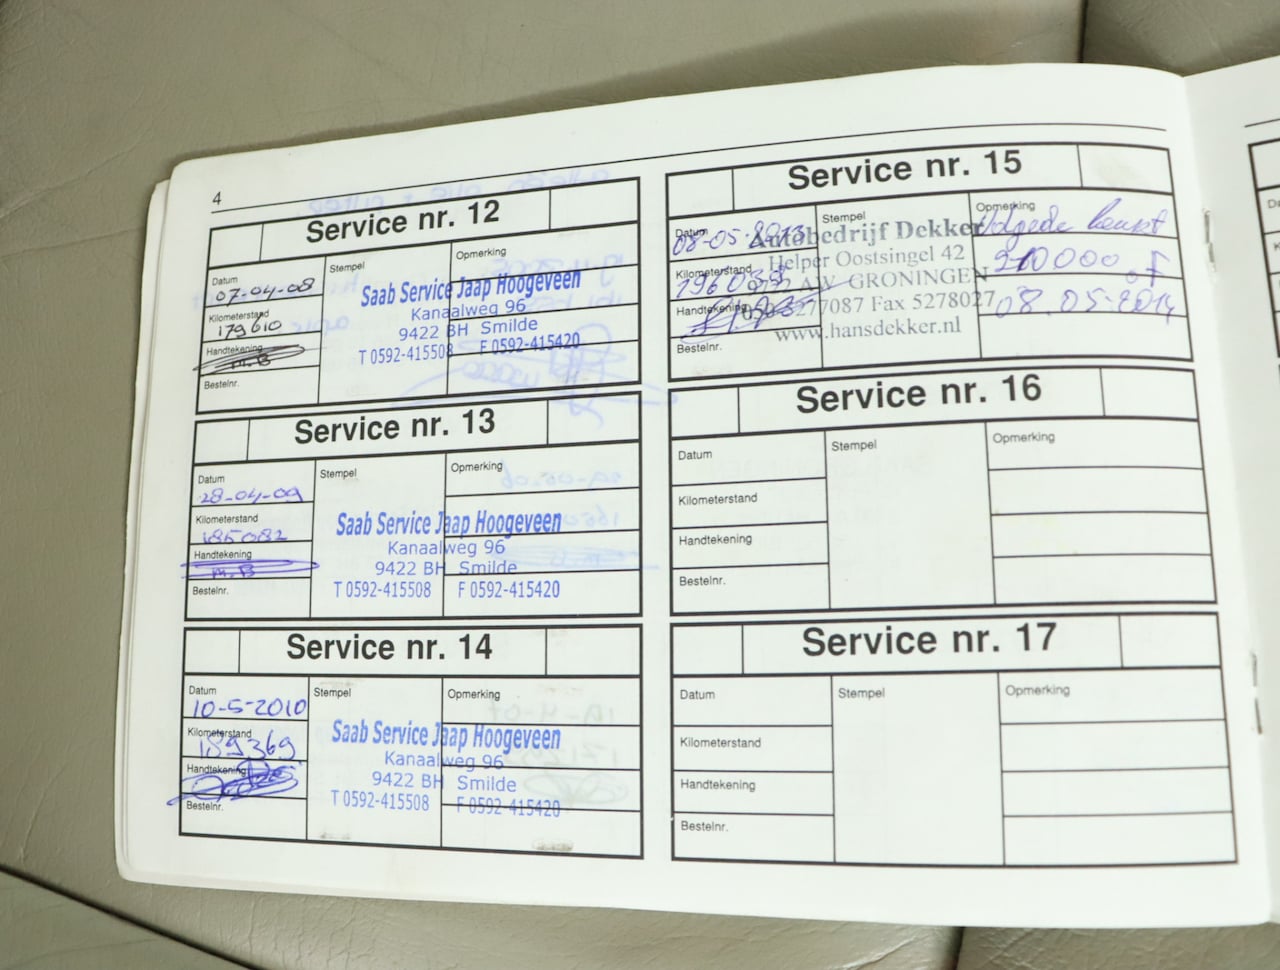 4
Service nr. 12
Datum
07-04-08
Kilometerstand
179610
Handtekening
m.B
Bestelnr.
Stempel
Opmerking
Saab Service Jaap Hoogeveen
Kanaalweg 96
9422 BH Smilde
T 0592-415508 F 0592-415420
Service nr. 13
Datum
28-04-09
Kilometerstand
185082
Handtekening
m.B
Bestelnr.
Stempel
Opmerking
Saab Service Jaap Hoogeveen
Kanaalweg 96
9422 BH Smilde
T 0592-415508 F 0592-415420
Service nr. 14
Datum
10-5-2010
Kilometerstand
189369
Handtekening
Bestelnr.
Stempel
Opmerking
Saab Service Jaap Hoogeveen
Kanaalweg 96
9422 BH Smilde
T 0592-415508 F 0592-415420
Service nr. 15
Datum
08-05-2013
Kilometerstand
Handtekening
Bestelnr.
Stempel
Autobedrijf Dekker
Helper Oostsingel 42
AW GRONINGEN
5277087 Fax 5278027
www.hansdekker.nl
Opmerking
Volgede beurt
210000 OF
08-05-2014
Service nr. 16
Datum
Kilometerstand
Handtekening
Bestelnr.
Stempel
Opmerking
Service nr. 17
Datum
Kilometerstand
Handtekening
Bestelnr.
Stempel
Opmerking